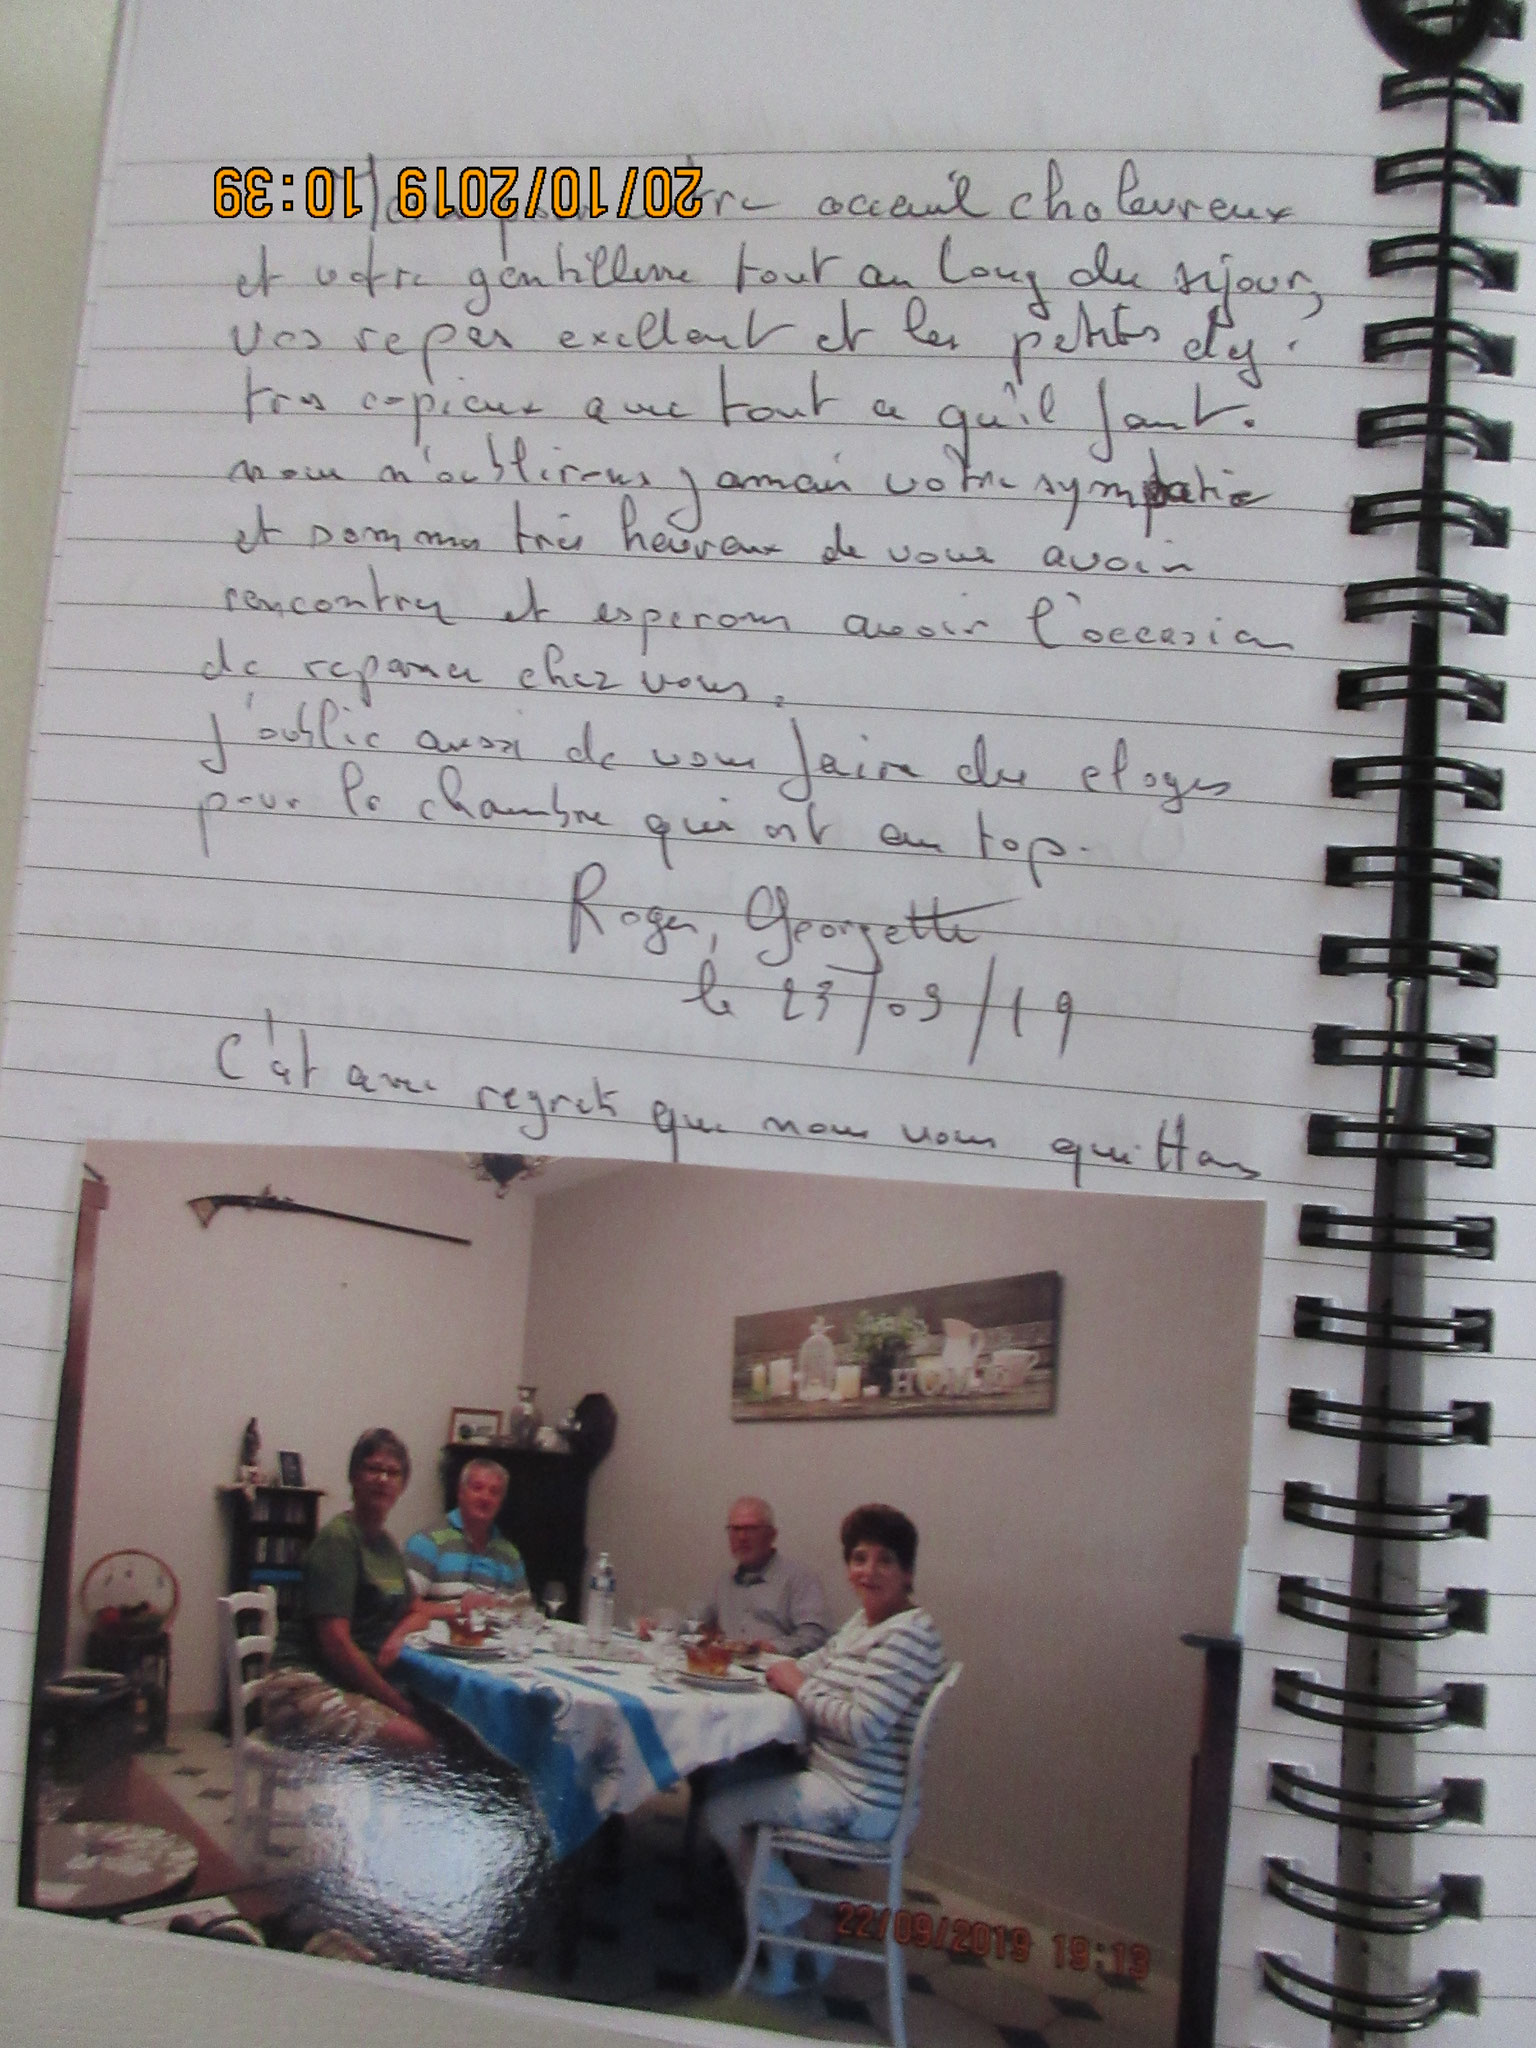 20/10/2019 10:39
votre acceuil chaleureux
et votre gentillesse tout au long du sejour,
vos repas excellent et les petits dej.
tres copieux avec tout ce qu'il faut.
nous n'oublirons jamais votre sympatie
et sommes très heureux de vous avoir
rencontrer et esperons avoir l'occasion
de repasser chez vous.
J'oublie aussi de vous faire des eloges
pour la chambre qui est au top.
Roger, Georgette
le 23/09/19
C'est avec regrets que nous vous quittons
HOME
22/09/2019 19:13